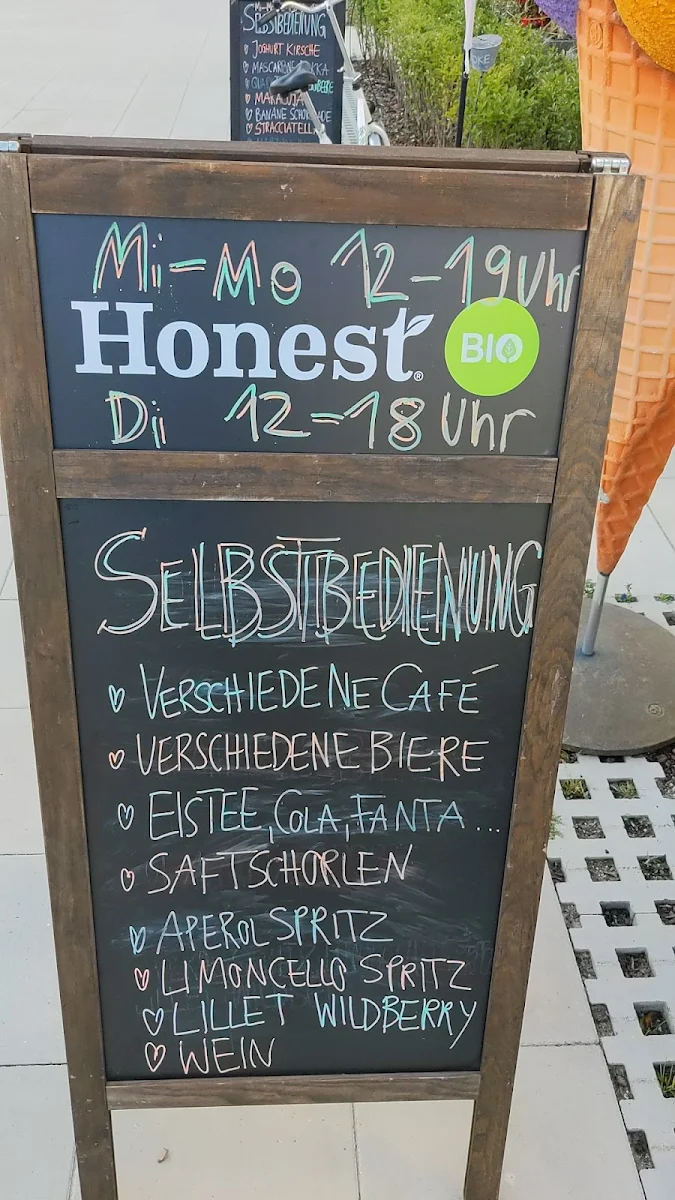 SELBSTBEDIENUNG
JOGHURT KIRSCHE
MASCARPONE
MARACUJA
BANANE SCHOKOLADE
STRACCIATELLA
Mi-Mo 12-19 Uhr
Honest®
BIO
Di 12-18 Uhr
SELBSTBEDIENUNG
VERSCHIEDENE CAFÉ
VERSCHIEDENE BIERE
EISTEE, COLA, FANTA...
SAFTSCHORLEN
APEROL SPRITZ
LIMONCELLO SPRITZ
LILLET WILDBERRY
WEIN